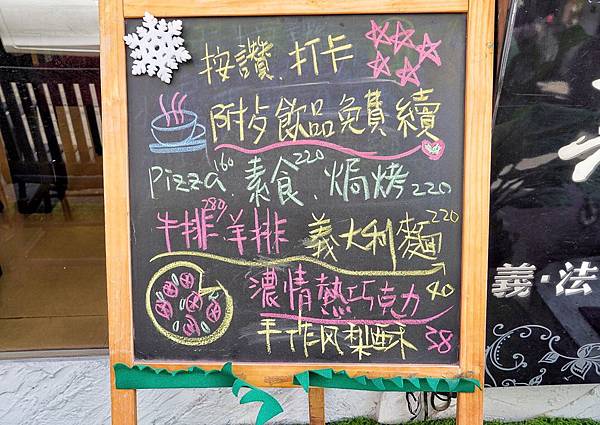 按讚、打卡
附抄飲品免費續
Pizza 160、素食 220、焗烤 220
牛排 280 羊排 義大利麵 220
濃情熱巧克力 40
手作凤梨酥 38
義·法